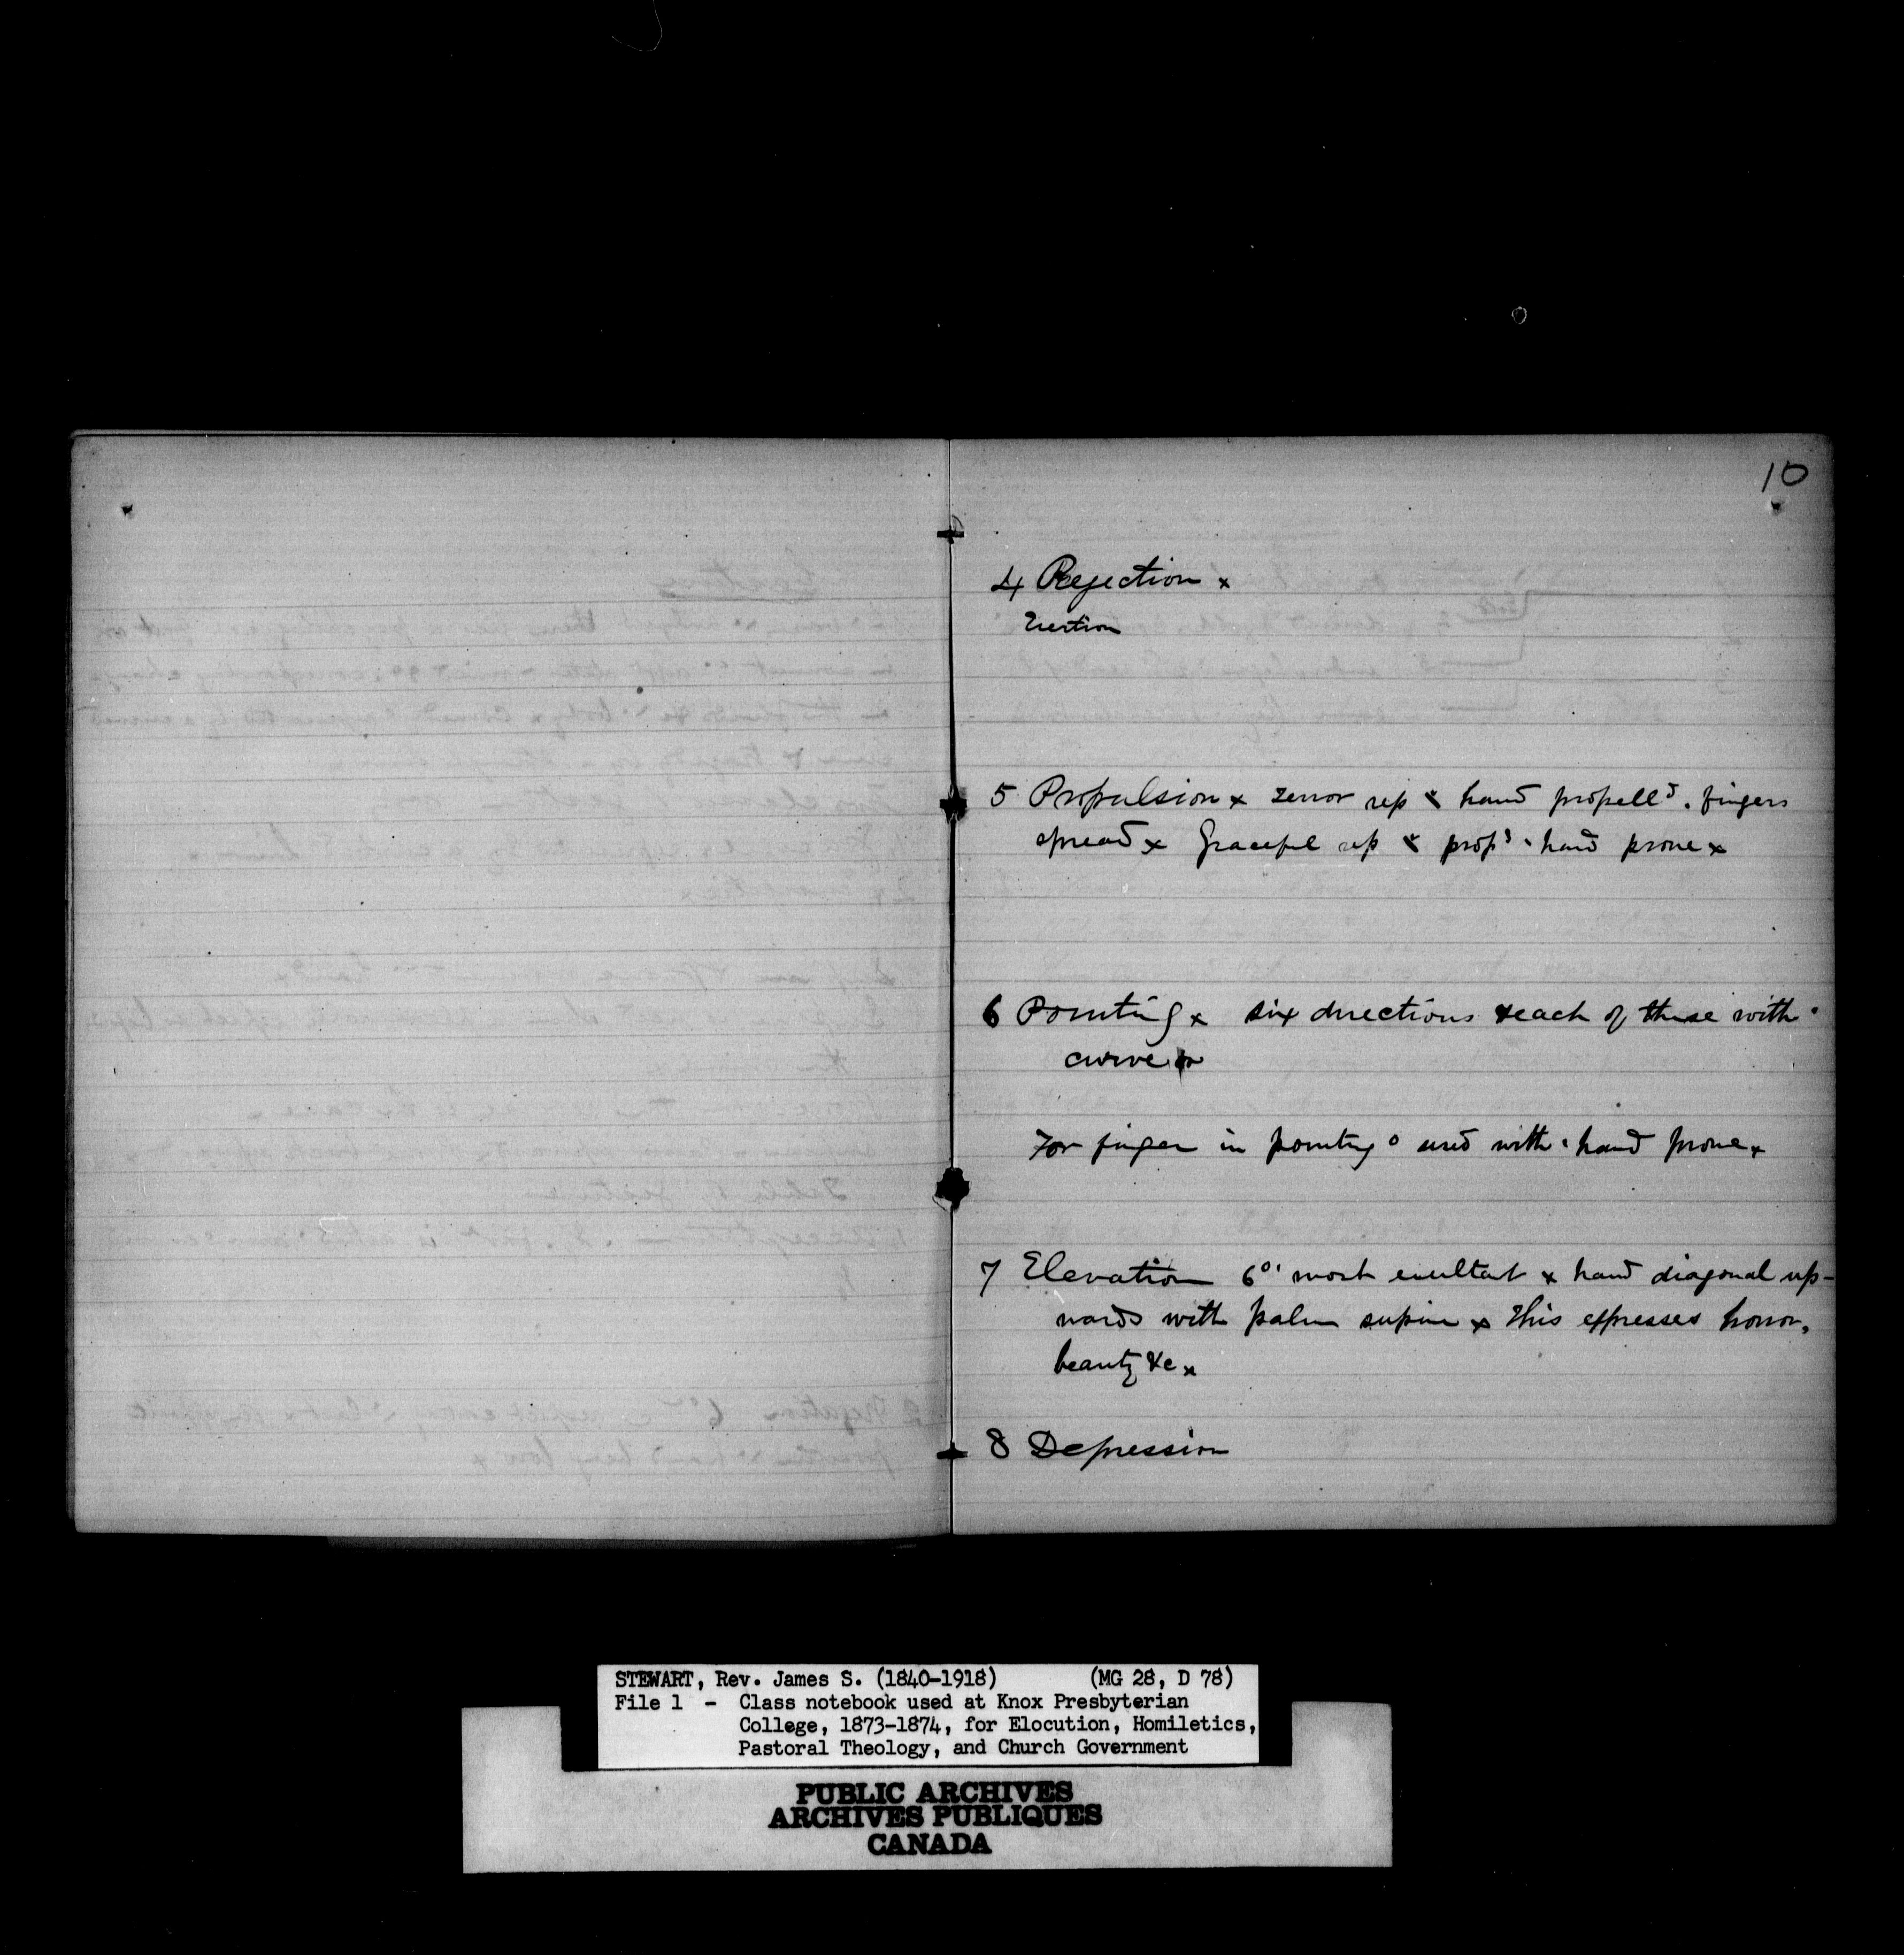 10
4 Rejection x
5 Propulsion x Terror rep & hand propelld. fingers
spread x Graceful rep & propd ' hand prone x
6 Pointing x six directions & each of these with '
curve
For finger in pointg o used with ' hand prone x
7 Elevation 6 o' most exultant x hand diagonal up-
wards with palm supine x This expresses horror,
beauty &c x
8 Depression
STEWART, Rev. James S. (1840-1918) (MG 28, D 78)
File 1 - Class notebook used at Knox Presbyterian
College, 1873-1874, for Elocution, Homiletics,
Pastoral Theology, and Church Government
PUBLIC ARCHIVES
ARCHIVES PUBLIQUES
CANADA